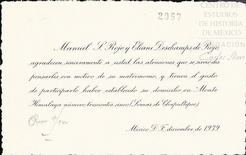 2057
CENTRO DE
ESTUDIOS
DE HISTORIA
DE MÉXICO
FUNDACIÓN
Carlos Slim
Manuel S. Rojo y Eliani Deschamps de Rojo
agradecen sinceramente a usted las atenciones que se sirvió dis-
pensarles con motivo de su matrimonio, y tienen el gusto
de participarle haber establecido su domicilio en Monte
Himalaya número trescientos cinco (Lomas de Chapultepec)
México D. F. diciembre de 1939